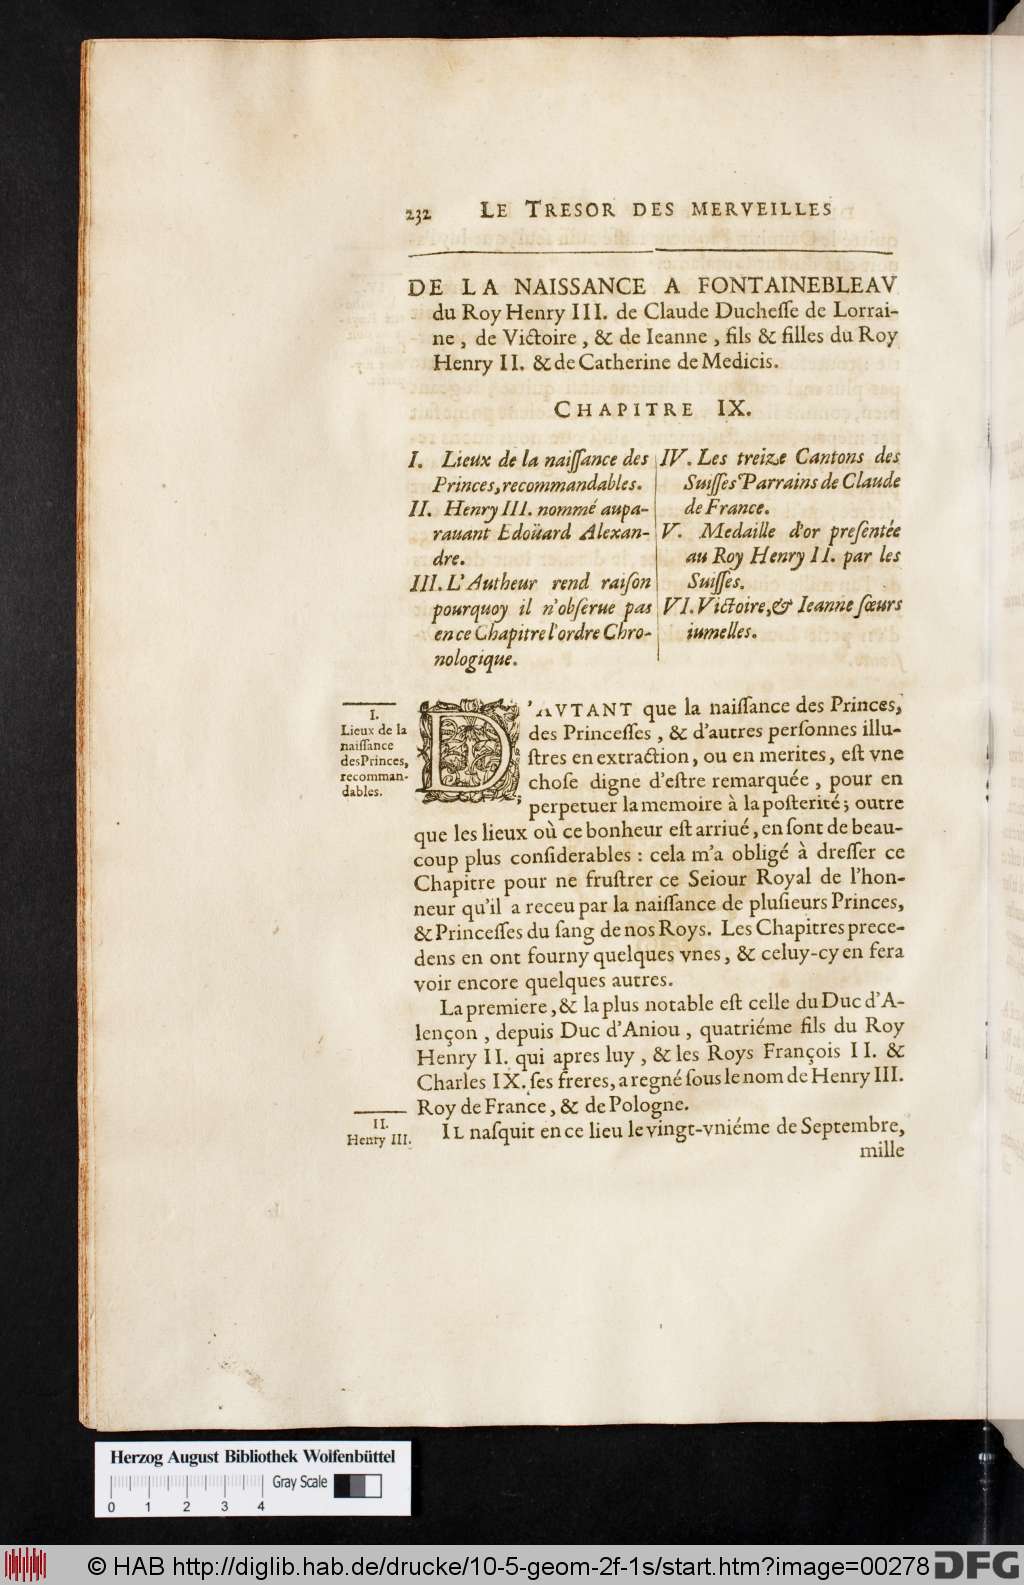 232 LE TRESOR DES MERVEILLES
DE LA NAISSANCE A FONTAINEBLEAV
du Roy Henry III. de Claude Ducheſſe de Lorrai-
ne, de Victoire, & de Ieanne, fils & filles du Roy
Henry II. & de Catherine de Medicis.
CHAPITRE IX.
I. Lieux de la naiſſance des
Princes, recommandables.
II. Henry III. nommé aupa-
rauant Edoüard Alexan-
dre.
III. L'Autheur rend raiſon
pourquoy il n'obſerue pas
en ce Chapitre l'ordre Chro-
nologique.
IV. Les treize Cantons des
Suiſſes Parrains de Claude
de France.
V. Medaille d'or preſentée
au Roy Henry II. par les
Suiſſes.
VI. Victoire, & Ieanne ſœurs
iumelles.
I.
Lieux de la
naiſſance
des Princes,
recomman-
dables.
D'AVTANT que la naiſſance des Princes,
des Princeſſes, & d'autres perſonnes illu-
ſtres en extraction, ou en merites, eſt vne
choſe digne d'eſtre remarquée, pour en
perpetuer la memoire à la poſterité; outre
que les lieux où ce bonheur eſt arriué, en ſont de beau-
coup plus conſiderables : cela m'a obligé à dreſſer ce
Chapitre pour ne fruſtrer ce Seiour Royal de l'hon-
neur qu'il a receu par la naiſſance de pluſieurs Princes,
& Princeſſes du ſang de nos Roys. Les Chapitres prece-
dens en ont fourny quelques vnes, & celuy-cy en fera
voir encore quelques autres.
La premiere, & la plus notable eſt celle du Duc d'A-
lençon, depuis Duc d'Aniou, quatriéme fils du Roy
Henry II. qui apres luy, & les Roys François II. &
Charles IX. ſes freres, a regné ſous le nom de Henry III.
Roy de France, & de Pologne.
II.
Henry III.
IL naſquit en ce lieu le vingt-vniéme de Septembre,
mille
Herzog August Bibliothek Wolfenbüttel
Gray Scale
0 1 2 3 4
© HAB http://diglib.hab.de/drucke/10-5-geom-2f-1s/start.htm?image=00278 DFG